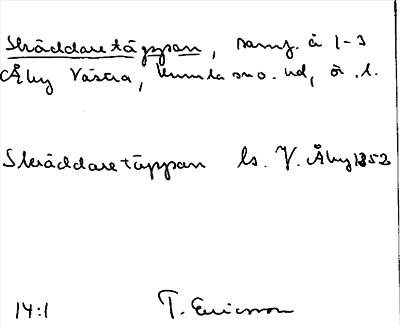 Skräddaretäppan, samf. å 1-3
Åby Västra, Kumla sn o. hd, ör. l.
Skräddaretäppan ls. V. Åby 1852
14:1 T. Ericsson